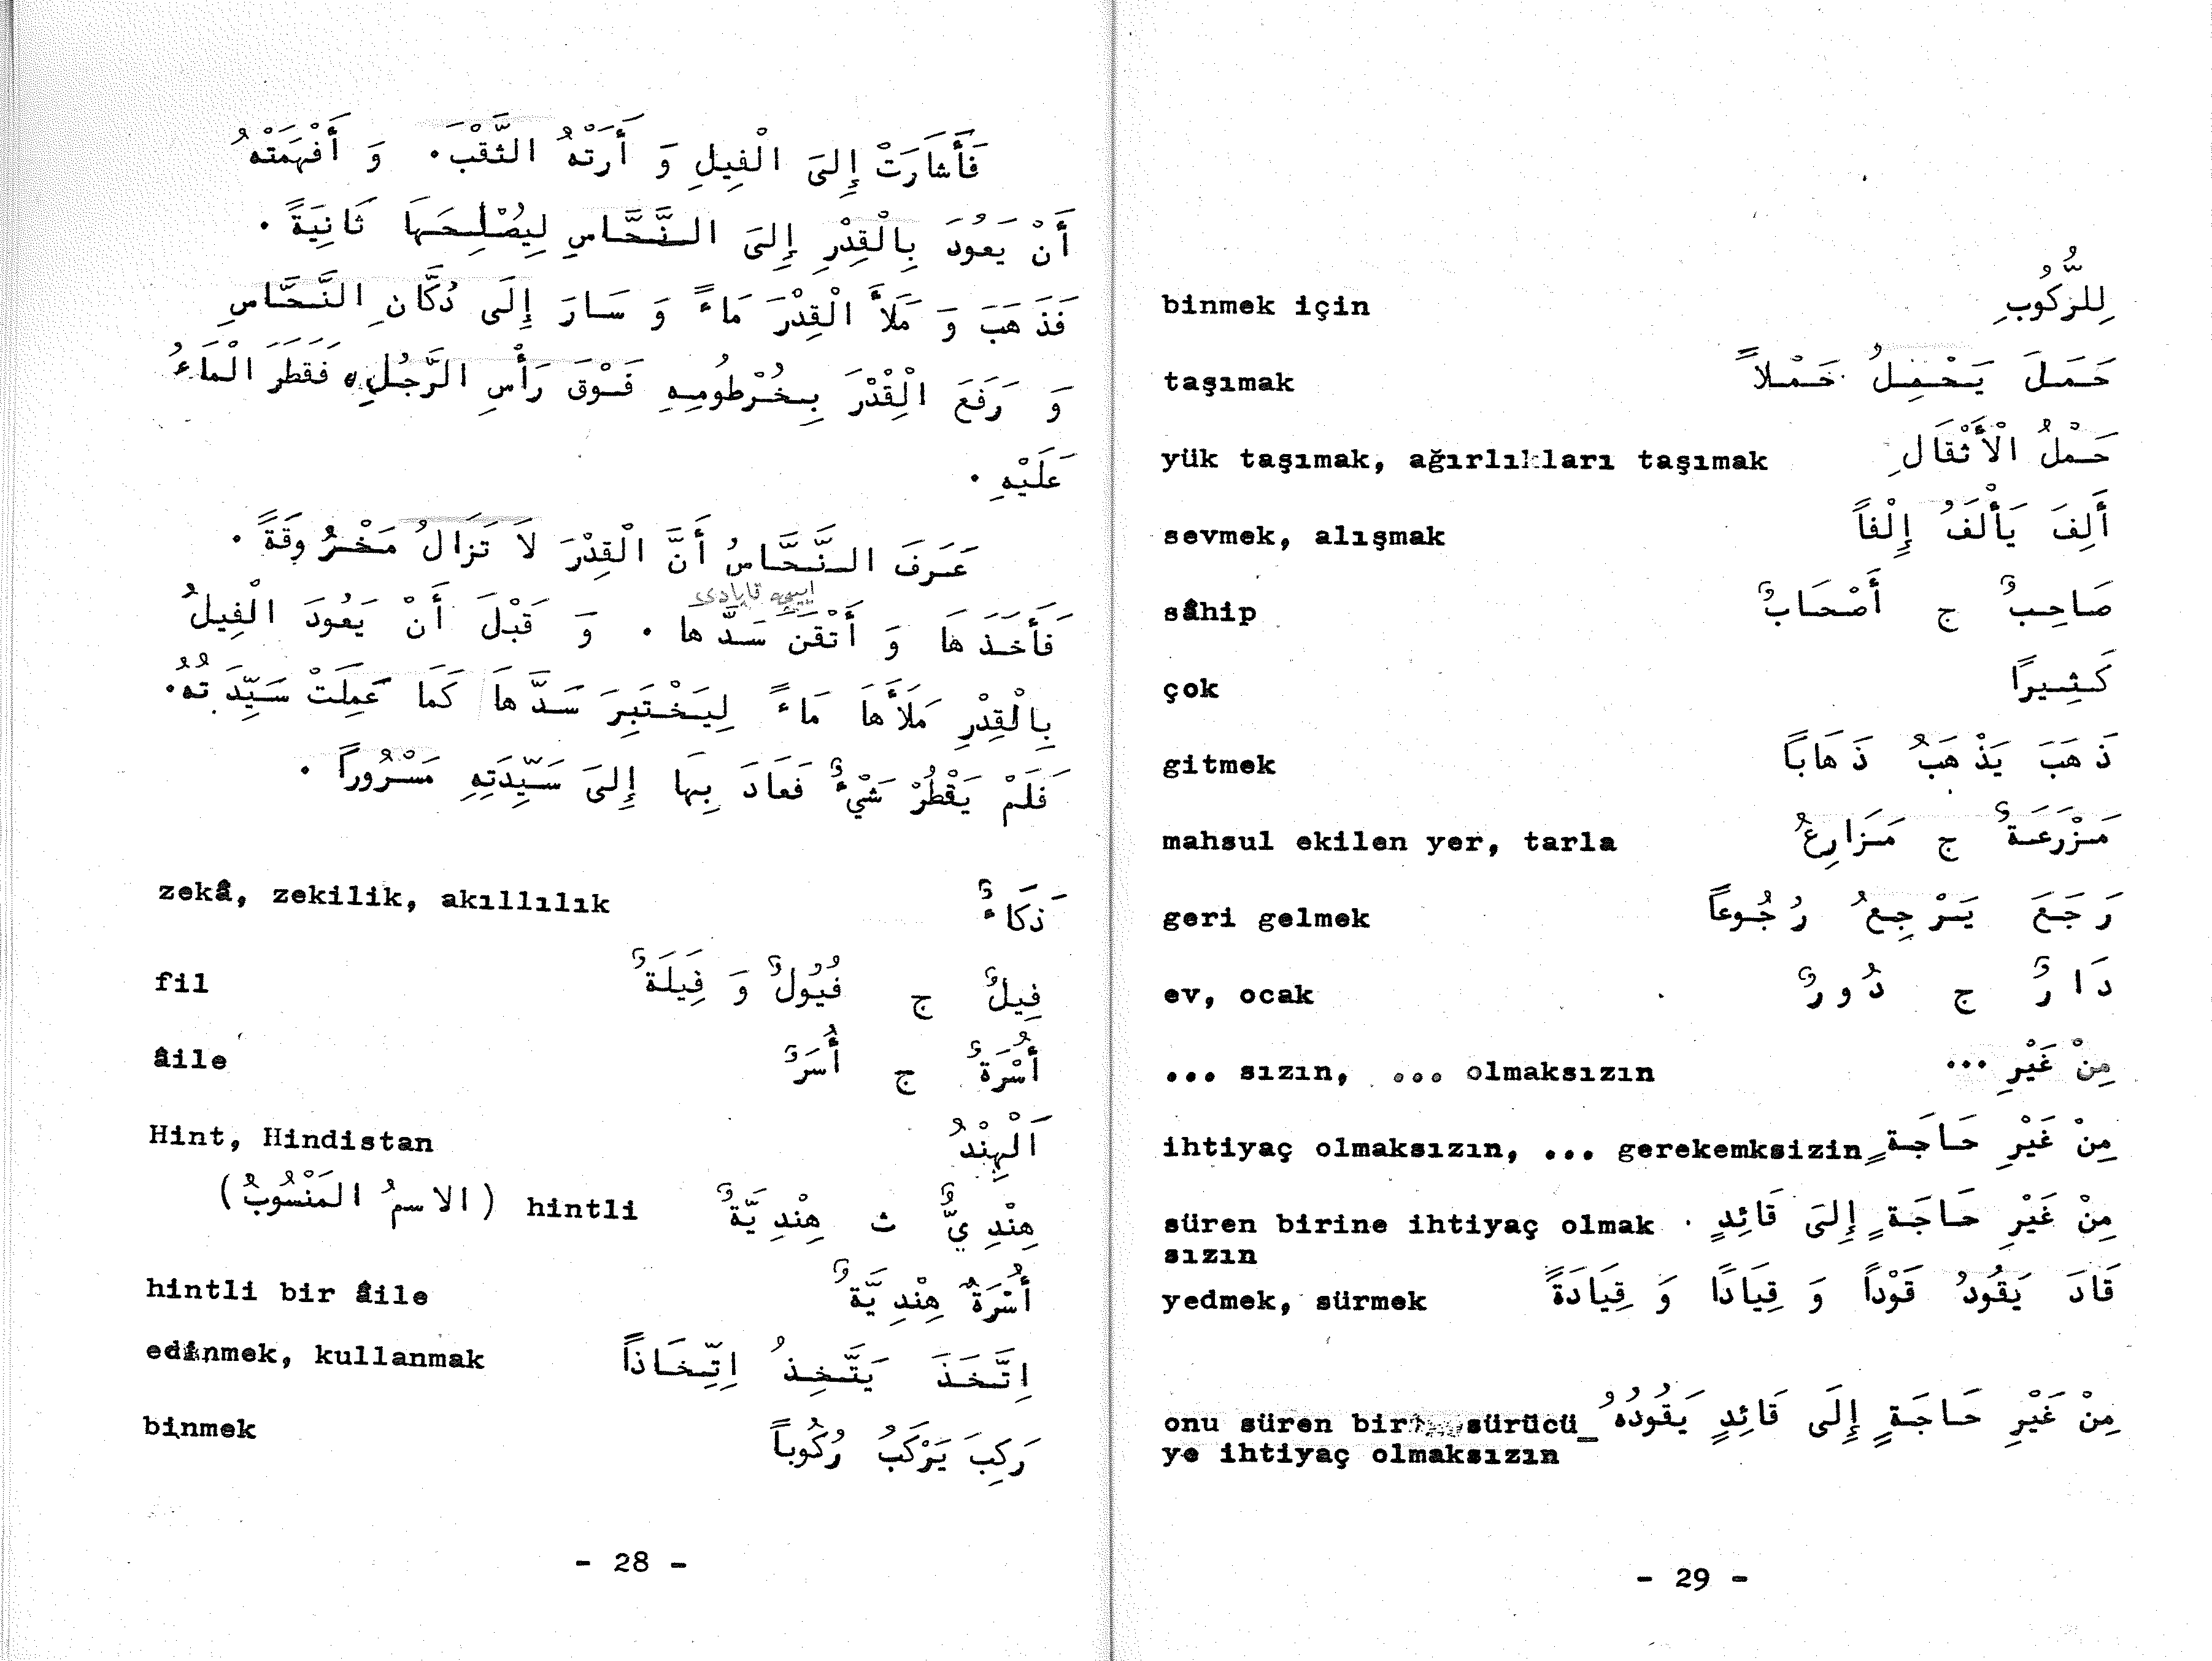 فَأَشَارَتْ إِلىَ الْفِيلِ وَ أَرَتْهُ الثَّقْبَ. وَ أَفْهَمَتْهُ
أَنْ يَعُودَ بِالْقِدْرِ إِلىَ النَّحَّاسِ لِيُصْلِحَهَا ثَانِيَةً.
فَذَهَبَ وَ مَلَأَ الْقِدْرَ مَاءً وَ سَارَ إِلَى دُكَّانِ النَّحَّاسِ
وَ رَفَعَ الْقِدْرَ بِخُرْطُومِهِ فَوْقَ رَأْسِ الرَّجُلِ، فَقَطَرَ الْمَاءُ
عَلَيْهِ.
عَرَفَ النَّحَّاسُ أَنَّ الْقِدْرَ لاَ تَزَالُ مَخْرُوقَةً.
فَأَخَذَهَا وَ أَتْقَنَ سَدَّهَا. وَ قَبْلَ أَنْ يَعُودَ الْفِيلُ
بِالْقِدْرِ مَلَأَهَا مَاءً لِيَخْتَبِرَ سَدَّهَا كَمَا عَمِلَتْ سَيِّدَتُهُ.
فَلَمْ يَقْطُرْ شَيْءٌ فَعَادَ بِهَا إِلىَ سَيِّدَتِهِ مَسْرُوراً.
zekâ, zekilik, akıllılık ذَكَاءٌ
fil فِيلٌ ج فُيُولٌ وَ فِيَلَةٌ
âile أُسْرَةٌ ج أُسَرٌ
Hint, Hindistan اَلْهِنْدُ
هِنْدِيٌّ ث هِنْدِيَّةٌ hintli (الاسمُ المَنْسُوبُ)
hintli bir âile أُسْرَةٌ هِنْدِيَّةٌ
edinmek, kullanmak اِتَّخَذَ يَتَّخِذُ اِتِّخَاذاً
binmek رَكِبَ يَرْكَبُ رُكُوباً
- 28 -
binmek için لِلرُّكُوبِ
taşımak حَمَلَ يَحْمِلُ حَمْلاً
yük taşımak, ağırlıkları taşımak حَمْلُ الْأَثْقَالِ
sevmek, alışmak أَلِفَ يَأْلَفُ إِلْفاً
sâhip صَاحِبٌ ج أَصْحَابٌ
çok كَثِيرًا
gitmek ذَهَبَ يَذْهَبُ ذَهَابًا
mahsul ekilen yer, tarla مَزْرَعَةٌ ج مَزَارِعُ
geri gelmek رَجَعَ يَرْجِعُ رُجُوعاً
ev, ocak دَارٌ ج دُورٌ
... sızın, ... olmaksızın مِنْ غَيْرِ ...
ihtiyaç olmaksızın, ... gerekemksizin مِنْ غَيْرِ حَاجَةٍ
süren birine ihtiyaç olmak مِنْ غَيْرِ حَاجَةٍ إِلىَ قَائِدٍ .
sızın
yedmek, sürmek قَادَ يَقُودُ قَوْداً وَ قِيَادًا وَ قِيَادَةً
onu süren bir sürücü_ مِنْ غَيْرِ حَاجَةٍ إِلَى قَائِدٍ يَقُودُهُ
ye ihtiyaç olmaksızın
- 29 -